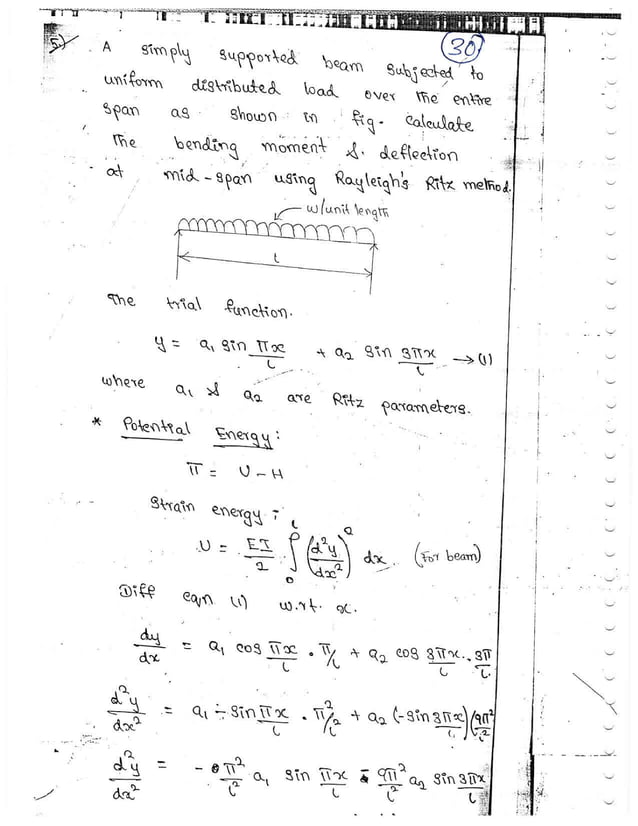 30
5)
A simply supported beam subjected to
uniform distributed load over the entire
span as shown in fig. calculate
The bending moment & deflection
at mid-span using Rayleigh's Ritz method.
w/unit length
l
The trial function.
y = a₁ sin πx/l + a₂ sin 3πx/l → (1)
where a₁ & a₂ are Ritz parameters.
* Potential Energy:
π = U - H
Strain energy;
U = EI/2 ∫₀ˡ (d²y/dx²)² dx (For beam)
Diff eqn (1) w.r.t. x.
dy/dx = a₁ cos πx/l . π/l + a₂ cos 3πx/l . 3π/l
d²y/dx² = a₁ - sin πx/l . π²/l² + a₂ (-sin 3πx/l) (9π²/l²
d²y/dx² = - π²/l² a₁ sin πx/l - 9π²/l² a₂ sin 3πx/l